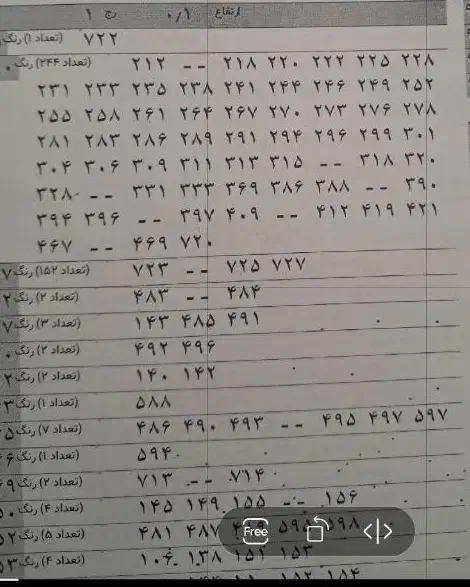 ارتفاع ۰/۱ رج ۱
(تعداد ۱) رنگ ۷۲۲
(تعداد ۲۴۴) رنگ ۲۱۲ -- ۲۱۸ ۲۲۰ ۲۲۲ ۲۲۵ ۲۲۸
۲۳۱ ۲۳۳ ۲۳۵ ۲۳۸ ۲۴۱ ۲۴۴ ۲۴۶ ۲۴۹ ۲۵۲
۲۵۵ ۲۵۸ ۲۶۱ ۲۶۴ ۲۶۷ ۲۷۰ ۲۷۳ ۲۷۶ ۲۷۸
۲۸۱ ۲۸۳ ۲۸۶ ۲۸۹ ۲۹۱ ۲۹۴ ۲۹۶ ۲۹۹ ۳۰۱
۳۰۴ ۳۰۶ ۳۰۹ ۳۱۱ ۳۱۳ ۳۱۵ -- ۳۱۸ ۳۲۰
۳۲۸ -- ۳۳۱ ۳۳۳ ۳۶۹ ۳۸۶ ۳۸۸ -- ۳۹۰
۳۹۴ ۳۹۶ -- ۳۹۷ ۴۰۹ -- ۴۱۲ ۴۱۹ ۴۲۱
۴۶۷ -- ۴۶۹ ۷۲۰
(تعداد ۱۵۲) رنگ ۷ ۷۲۳ -- ۷۲۵ ۷۲۷
(تعداد ۲) رنگ ۲ ۴۸۳ -- ۴۸۴
(تعداد ۳) رنگ ۷ ۱۴۳ ۴۸۵ ۴۹۱
(تعداد ۲) رنگ ۰ ۴۹۲ ۴۹۶
(تعداد ۲) رنگ ۲ ۱۴۰ ۱۴۲
(تعداد ۱) رنگ ۳ ۵۸۸
(تعداد ۷) رنگ ۵ ۴۸۶ ۴۹۰ ۴۹۳ -- ۴۹۵ ۴۹۷ ۵۹۷
(تعداد ۱) رنگ ۶ ۵۹۴
(تعداد ۲) رنگ ۹ ۷۱۳ -- ۷۱۴
(تعداد ۴) رنگ ۰ ۱۴۵ ۱۴۹ ۱۵۵ -- ۱۵۶
(تعداد ۵) رنگ ۵۲ ۴۸۱ ۴۸۷ ۵۹۸
Free
(تعداد ۴) رنگ ۵۳ ۱۰۶ ۱۳۸ ۱۵۲ ۱۵۳